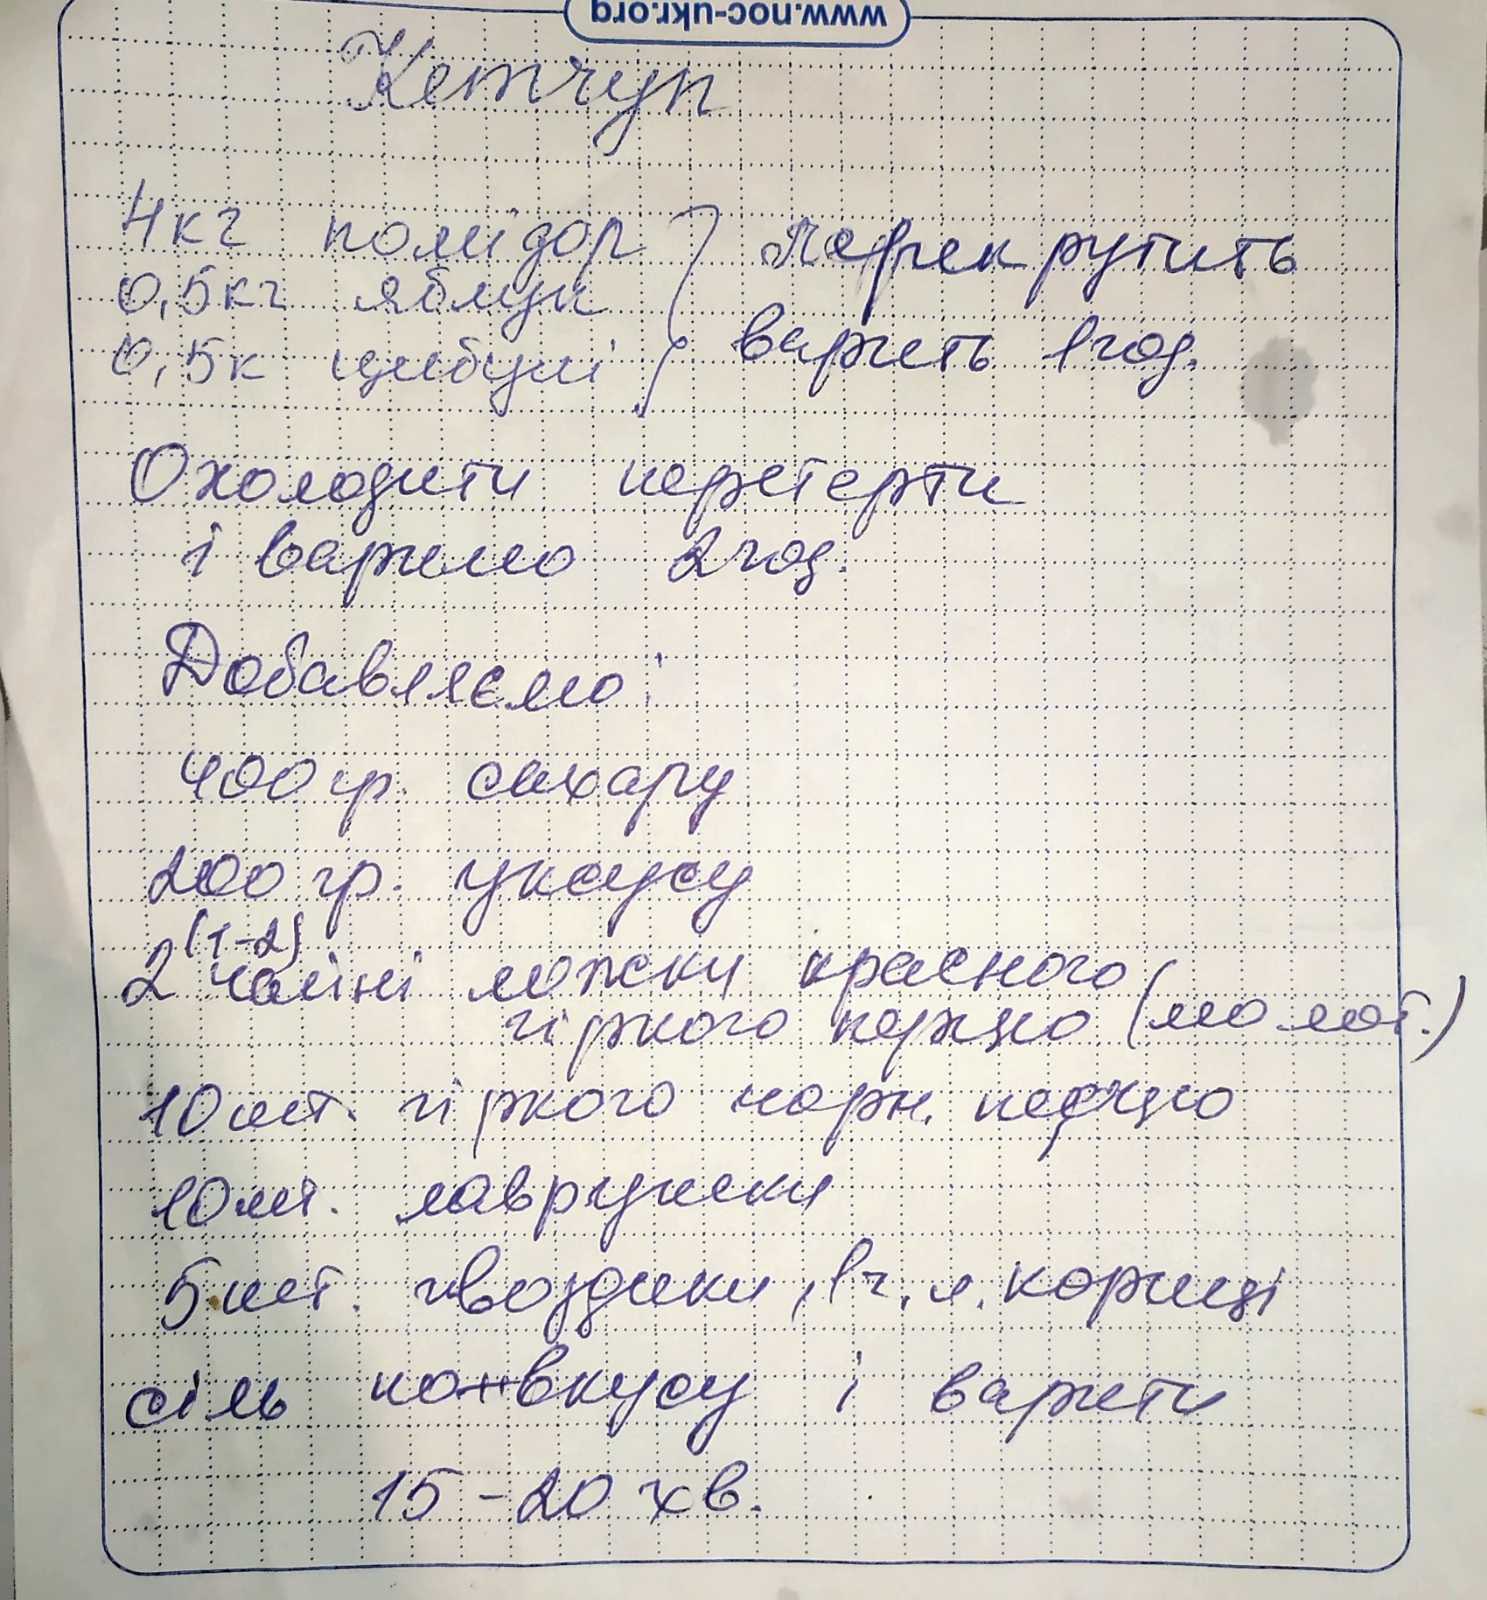 www.noc-ukr.org
Кетчуп
4кг помідор
0,5кг яблук
0,5к цибулі
Перекрутить
варить 1год.
Охолодити перетерти
і варимо 2год.
Добавляємо:
400гр. сахару
200гр. уксусу
(1-2)
2 чайні ложки красного
гіркого перцю (молот.)
10шт. гіркого чорн. перцю
10шт. лаврушки
5шт. гвоздики, 1ч.л. кориці
сіль по вкусу і варити
15-20 хв.